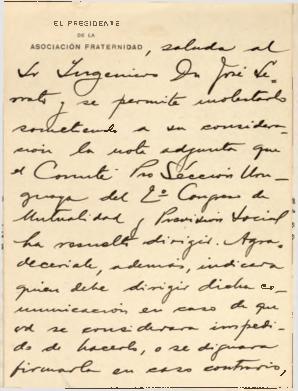 EL PRESIDENTE
DE LA
ASOCIACIÓN FRATERNIDAD, saluda al
Sr Ingeniero Dn José Se-
rrato y se permite molestarlo
sometiendo a su considera-
ción la nota adjunta que
el Comité Pro Sección Uru-
guaya del 2º Congreso de
Mutualidad y Previsión Social
ha resuelto dirigir. Agra-
deceríale, además, indicara
quien debe dirigir dicha co-
municación en caso de que
vd se considerara impedi-
do de hacerlo, o se dignara
firmarla en caso contrario,